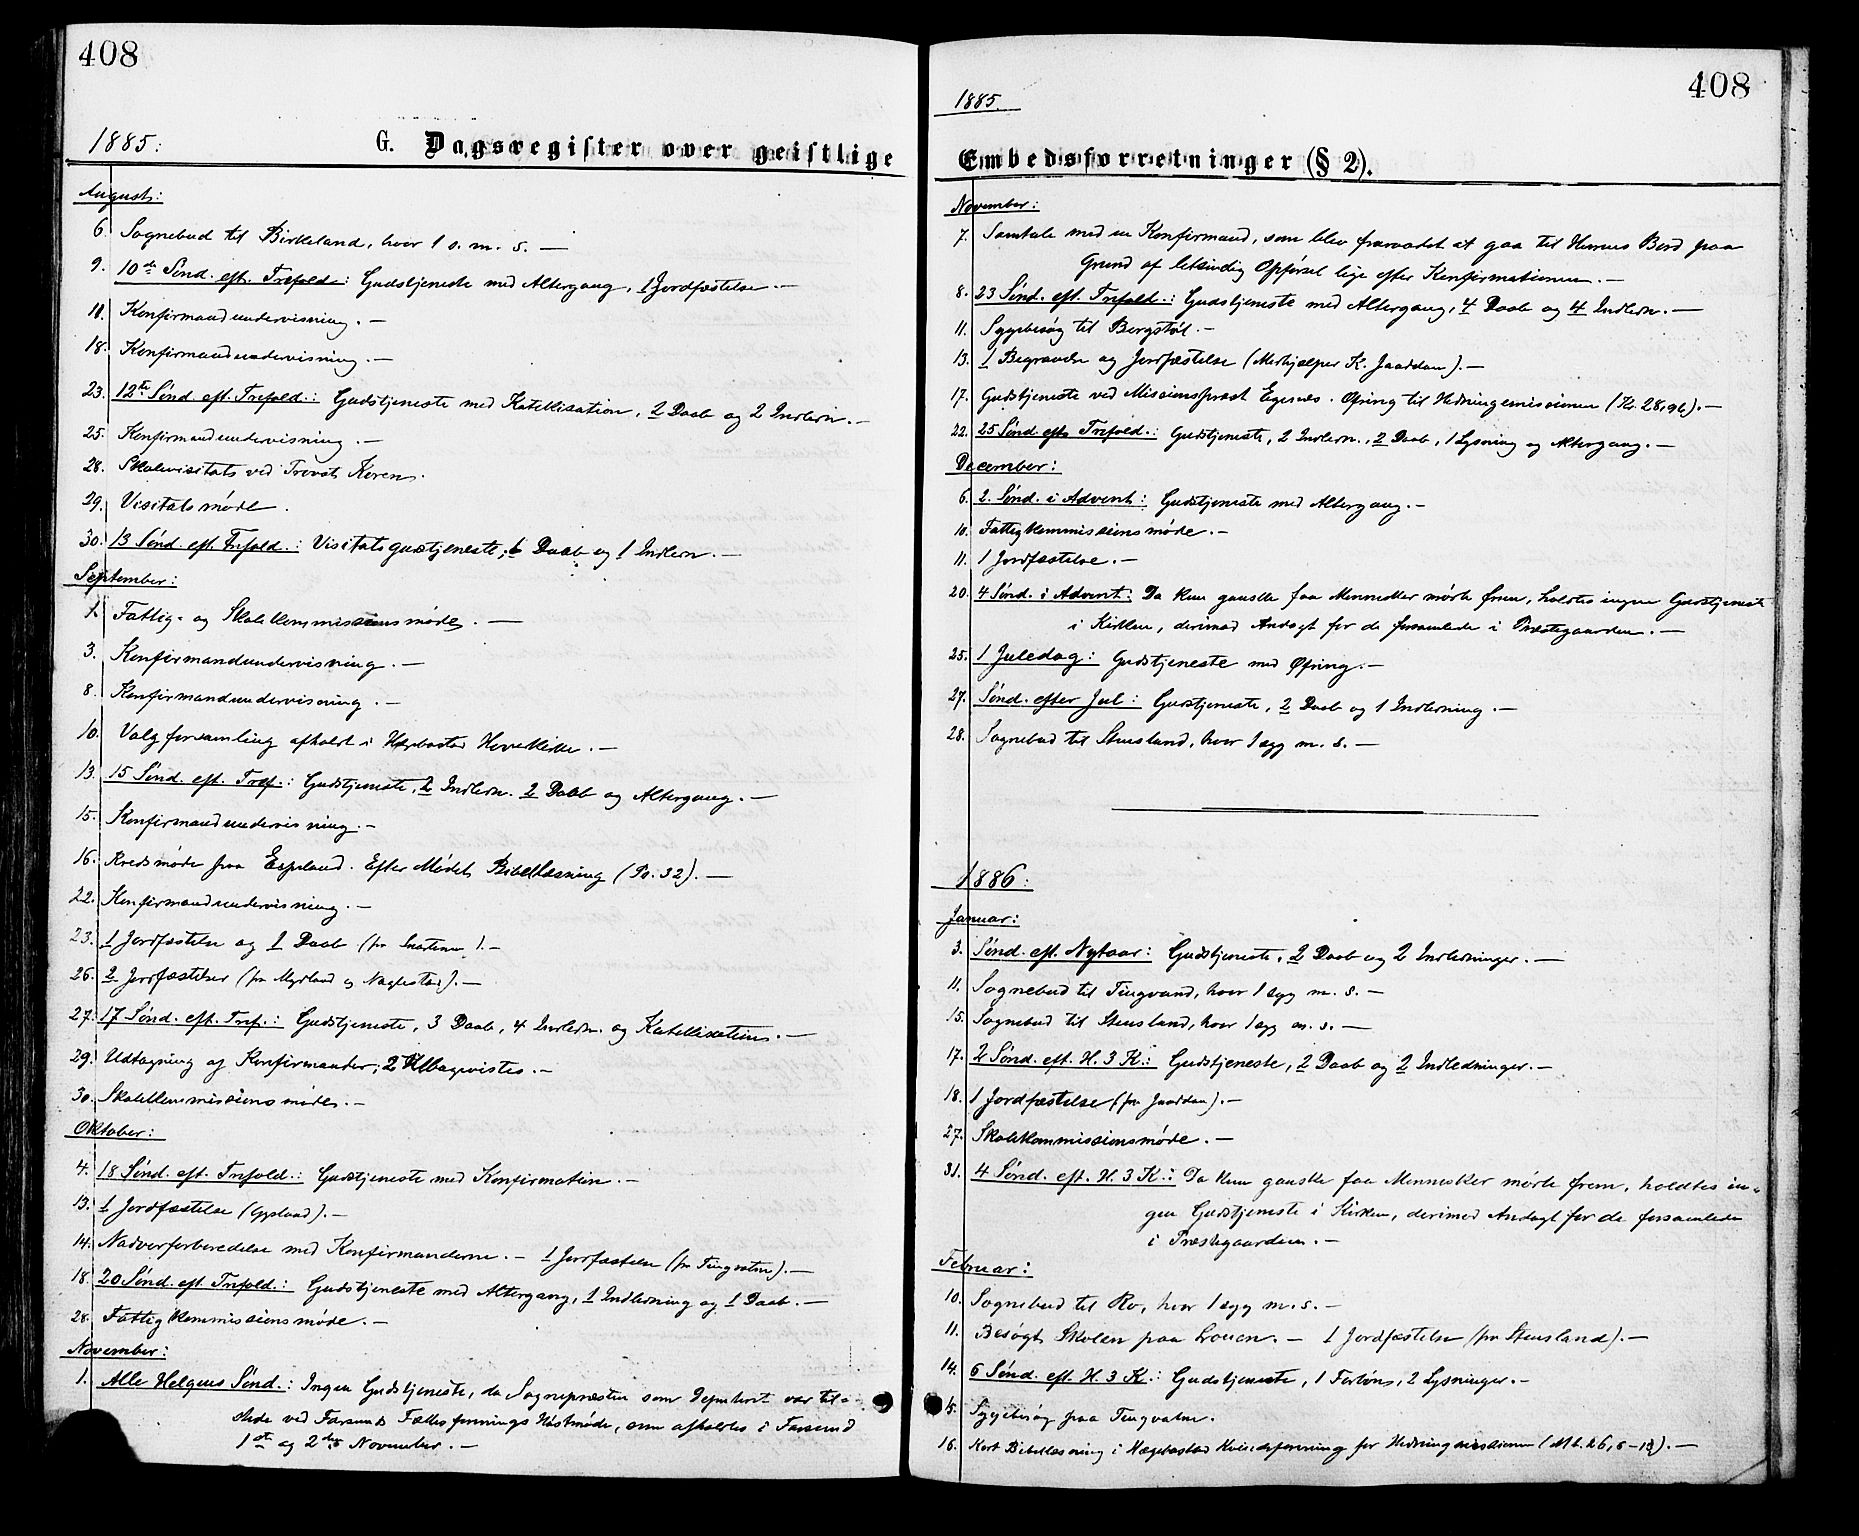 408
1885:
G. Dagsregister over geistlige
August:
6. Sognebud til Birkeland, hvor 1 s. m. s. —
9. 10de Sønd. eft. Trefold.: Gudstjeneste med Altergang, 1 Jordfæstelse. —
11. Konfirmandundervisning. —
18. Konfirmandundervisning. —
23. 12te Sønd. eft. Trefold.: Gudstjeneste med Katekisation, 2 Daab og 2 Indledn. —
25. Konfirmandundervisning. —
28. Skolevisitats ved Provst Koren.
29. Visitatsmøde.
30. 13 Sønd. eft. Trefold.: Visitatsgustjeneste, 6 Daab og 1 Indledn. —
September:
1. Fattig- og Skolekommissionsmøde. —
3. Konfirmandundervisning. —
8. Konfirmandundervisning. —
10. Valgforsamling afholdt i Hægebostad Hovedkirke. —
13. 15 Sønd. eft. Tref.: Gudstjeneste, 2 Indledn. 2 Daab og Altergang. —
15. Konfirmandundervisning. —
16. Kredsmøde paa Espeland. Efter Mødet Bibellæsning (Ps. 32). —
22. Konfirmandundervisning. —
23. 1 Jordfæstelse og 1 Daab (fra Snartemo). —
26. 2 Jordfæstelser (fra Myrland og Naglestad). —
27. 17 Sønd. eft. Tref.: Gudstjeneste, 3 Daab, 4 Indledn. og Katekisation. —
29. Udtagning af Konfirmander, 2 tilbagevistes. —
30. Skolekommissionsmøde. —
Oktober:
4. 18 Sønd. eft. Trefold.: Gudstjeneste med Konfirmation. —
13. 1 Jordfæstelse (Gysland). —
14. Nadverforberedelse med Konfirmanderne. — 1 Jordfæstelse (fra Tingvatn). —
18. 20 Sønd. eft. Trefold.: Gudstjeneste med Altergang, 1 Indledning og 1 Daab. —
28. Fattigkommissionsmøde. —
November:
1. Alle Helgens Sønd.: Ingen Gudstjeneste, da Sognepræsten som Deputeret var til-
stede ved Farsunds Fællesforenings Høstmøde, som afholdtes i Farsund
1ste og 2den November. —
408
1885.
Embedsforretninger (§ 2).
November:
7. Samtale med en Konfirmand, som blev fraraadet at gaa til Herrens Bord paa
Grund af letsindig Opførsel lige efter Konfirmationen. —
8. 23 Sønd. eft. Trefold.: Gudstjeneste med Altergang, 4 Daab og 4 Indledn. —
11. Sygebesøg til Bergstøl. —
13. 1 Begravelse og Jordfæstelse (Medhjælper K. Jaaddan). —
17. Gudstjeneste ved Missionsprest Egenæs. Ofring til Hedningemissionen (Kr. 28,96). —
22. 25 Sønd. eft. Trefold.: Gudstjeneste, 2 Indledn., 2 Daab, 1 Lysning og Altergang. —
December:
6. 2. Sønd. i Advent: Gudstjeneste med Altergang. —
10. Fattigkommissionsmøde. —
11. 1 Jordfæstelse. —
20. 4 Sønd. i Advent: Da kun ganske faa Mennesker mødte frem, holdtes ingen Gudstjeneste
i Kirken, derimod Andagt for de forsamlede i Præstegaarden. —
25. 1 Juledag: Gudstjeneste med Ofring. —
27. Sønd. efter Jul: Gudstjeneste, 2 Daab og 1 Indledning. —
28. Sognebud til Stensland, hvor 1 syg m. s. —
1886:
Januar:
3. Sønd. eft. Nytaar: Gudstjeneste, 2 Daab og 2 Indledninger. —
11. Sognebud til Tingvand, hvor 1 syg m. s. —
15. Sognebud til Stensland, hvor 1 syg m. s. —
17. 2 Sønd. eft. H. 3 K.: Gudstjeneste, 2 Daab og 2 Indledninger. —
18. 1 Jordfæstelse (fra Jaaddan). —
27. Skolekommissionsmøde. —
31. 4 Sønd. eft. H. 3 K.: Da kun ganske faa Mennesker mødte frem, holdtes in-
gen Gudstjeneste i Kirken, derimod Andagt for de forsamlede
i Præstegaarden. —
Februar:
10. Sognebud til Ro, hvor 1 syg m. s. —
11. Besøgt Skolen paa Louen. — 1 Jordfæstelse (fra Stensland). —
14. 6 Sønd. eft. H. 3 K.: Gudstjeneste, 1 Forbøn, 2 Lysninger. —
15. Sygebesøg paa Tingvatn.
16. Kort Bibellæsning i Hægebostad Kvindeforening for Hedningmissionen (Mt. 26, 6-13). —